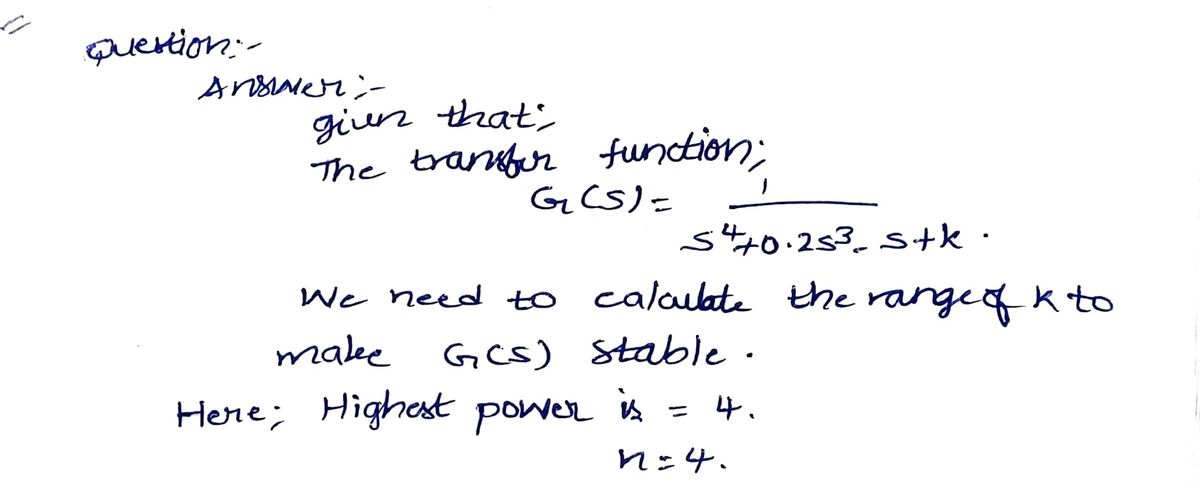 Question:-
Answer:-
given that;
The transfer function;
G(S) = 1
s⁴+0.2s³- s+k.
We need to calculate the range of k to
make G(S) stable.
Here; Highest power is = 4.
n=4.